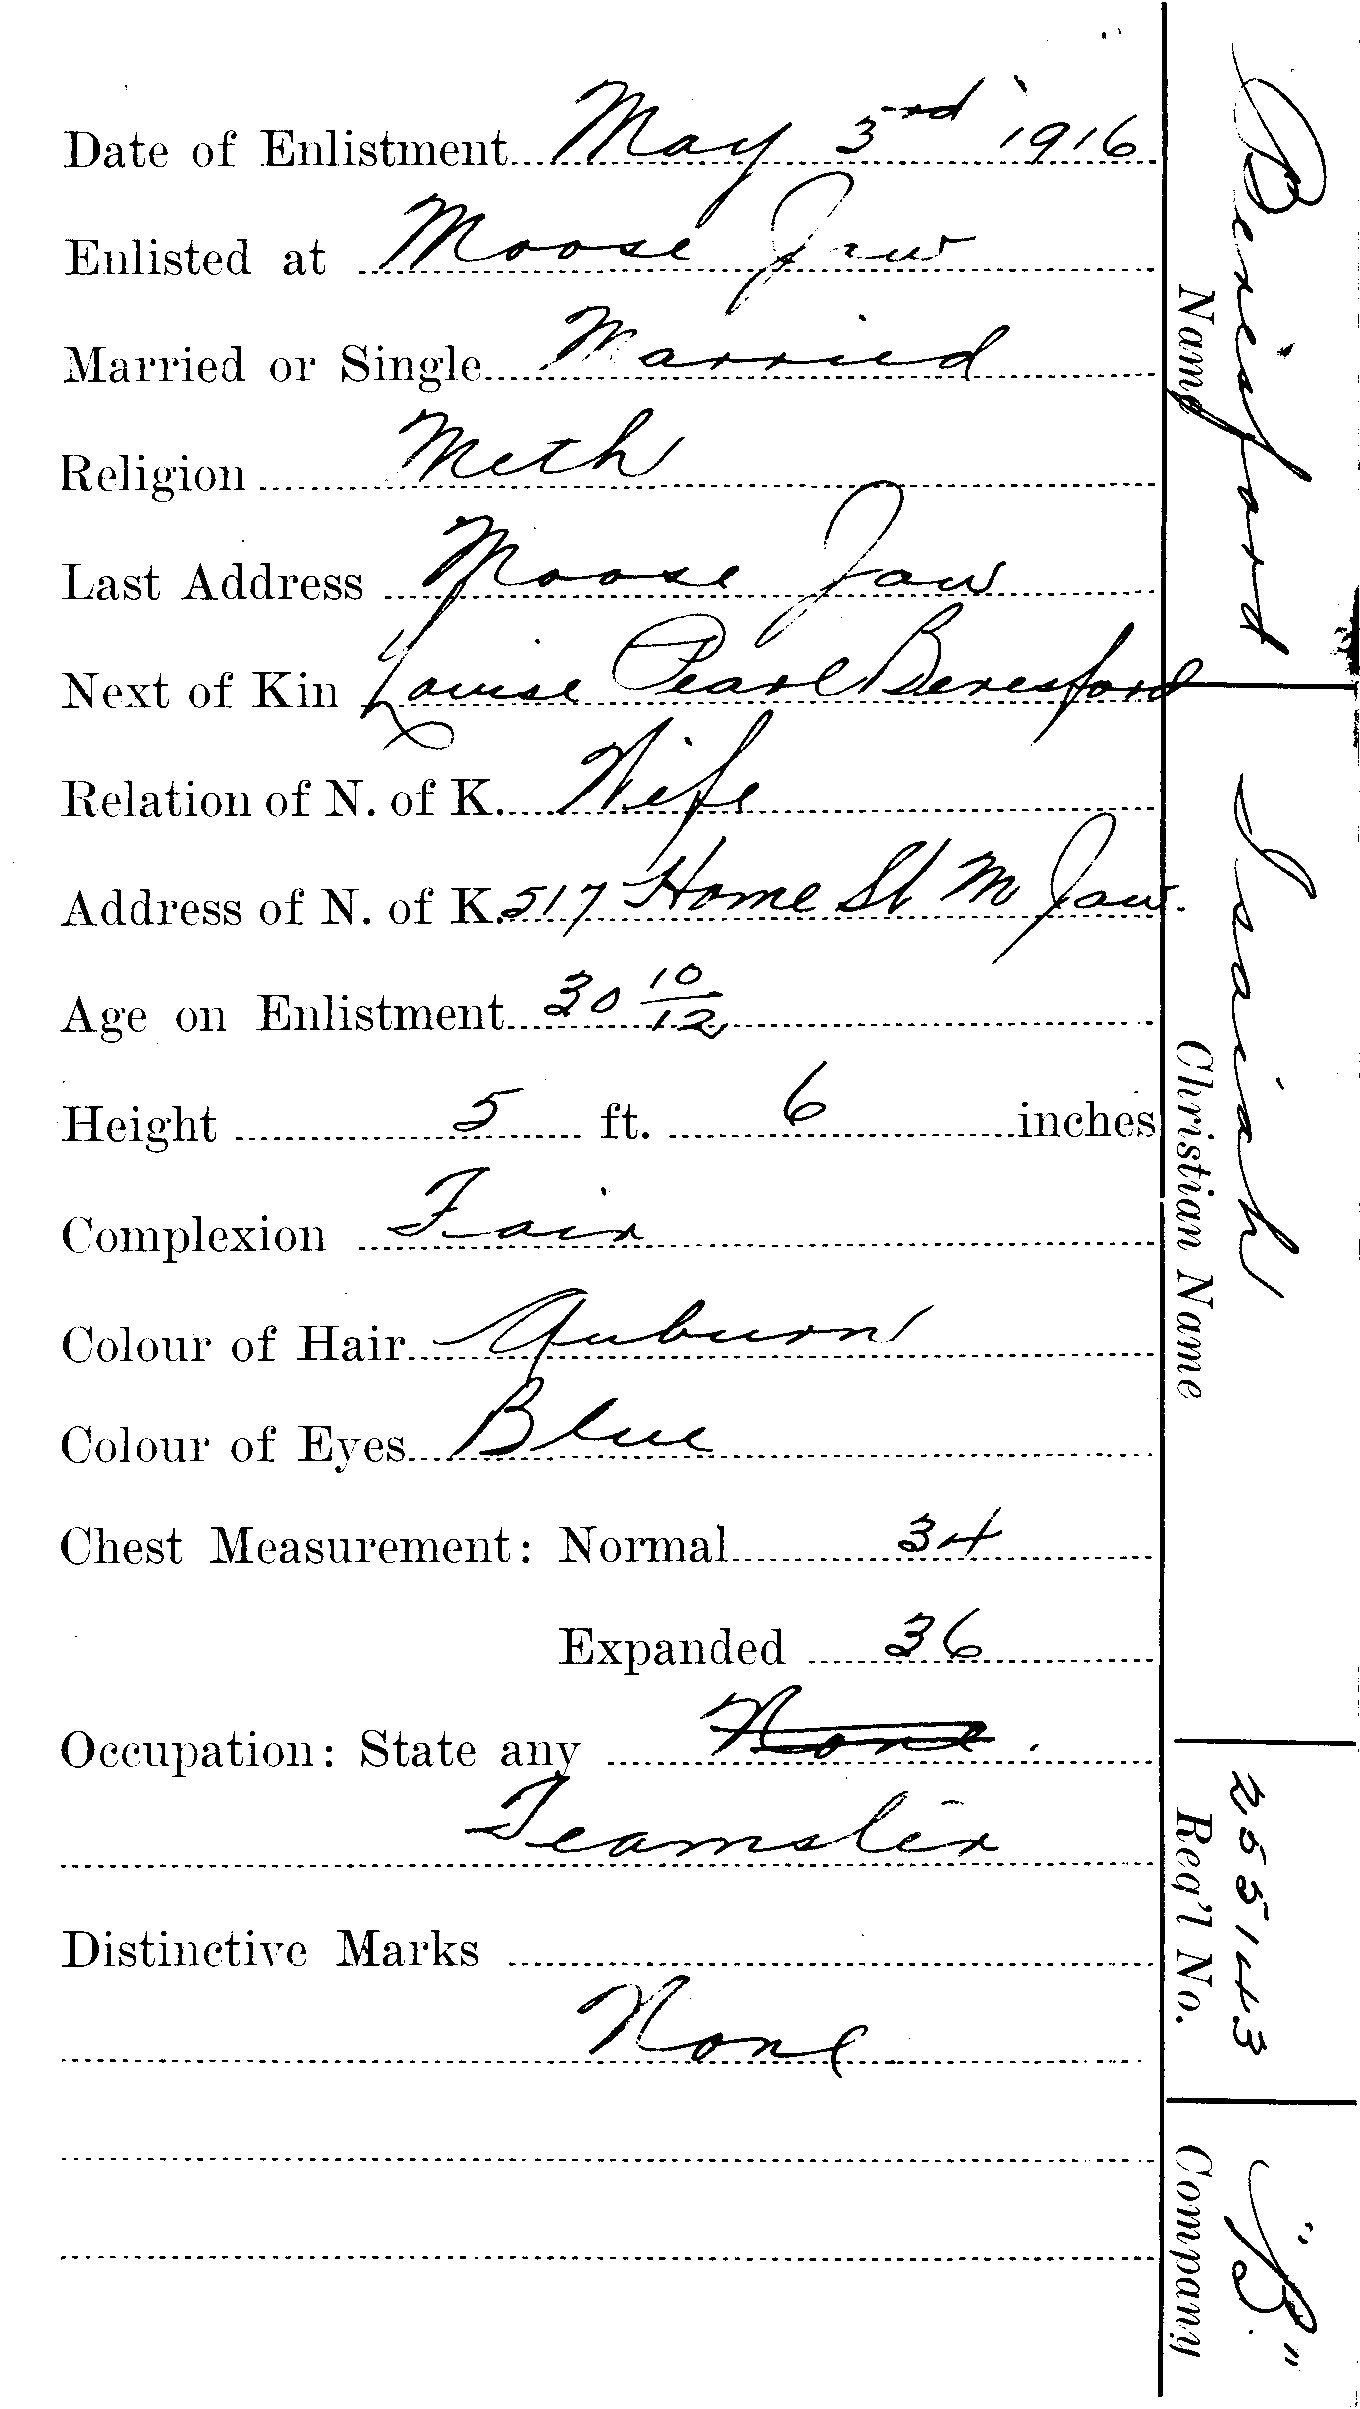 Date of Enlistment May 3rd 1916
Enlisted at Moose Jaw
Married or Single Married
Religion Meth
Last Address Moose Jaw
Next of Kin Louise Pearl Beresford
Relation of N. of K. Wife
Address of N. of K. 517 Home St M Jaw.
Age on Enlistment 30 10/12
Height 5 ft. 6 inches
Complexion Fair
Colour of Hair Auburn
Colour of Eyes Blue
Chest Measurement: Normal 34
Expanded 36
Occupation: State any None
Teamster
Distinctive Marks
None
Beresford
Name
Isaiah
Christian Name
255143
Reg'l No.
"B"
Company